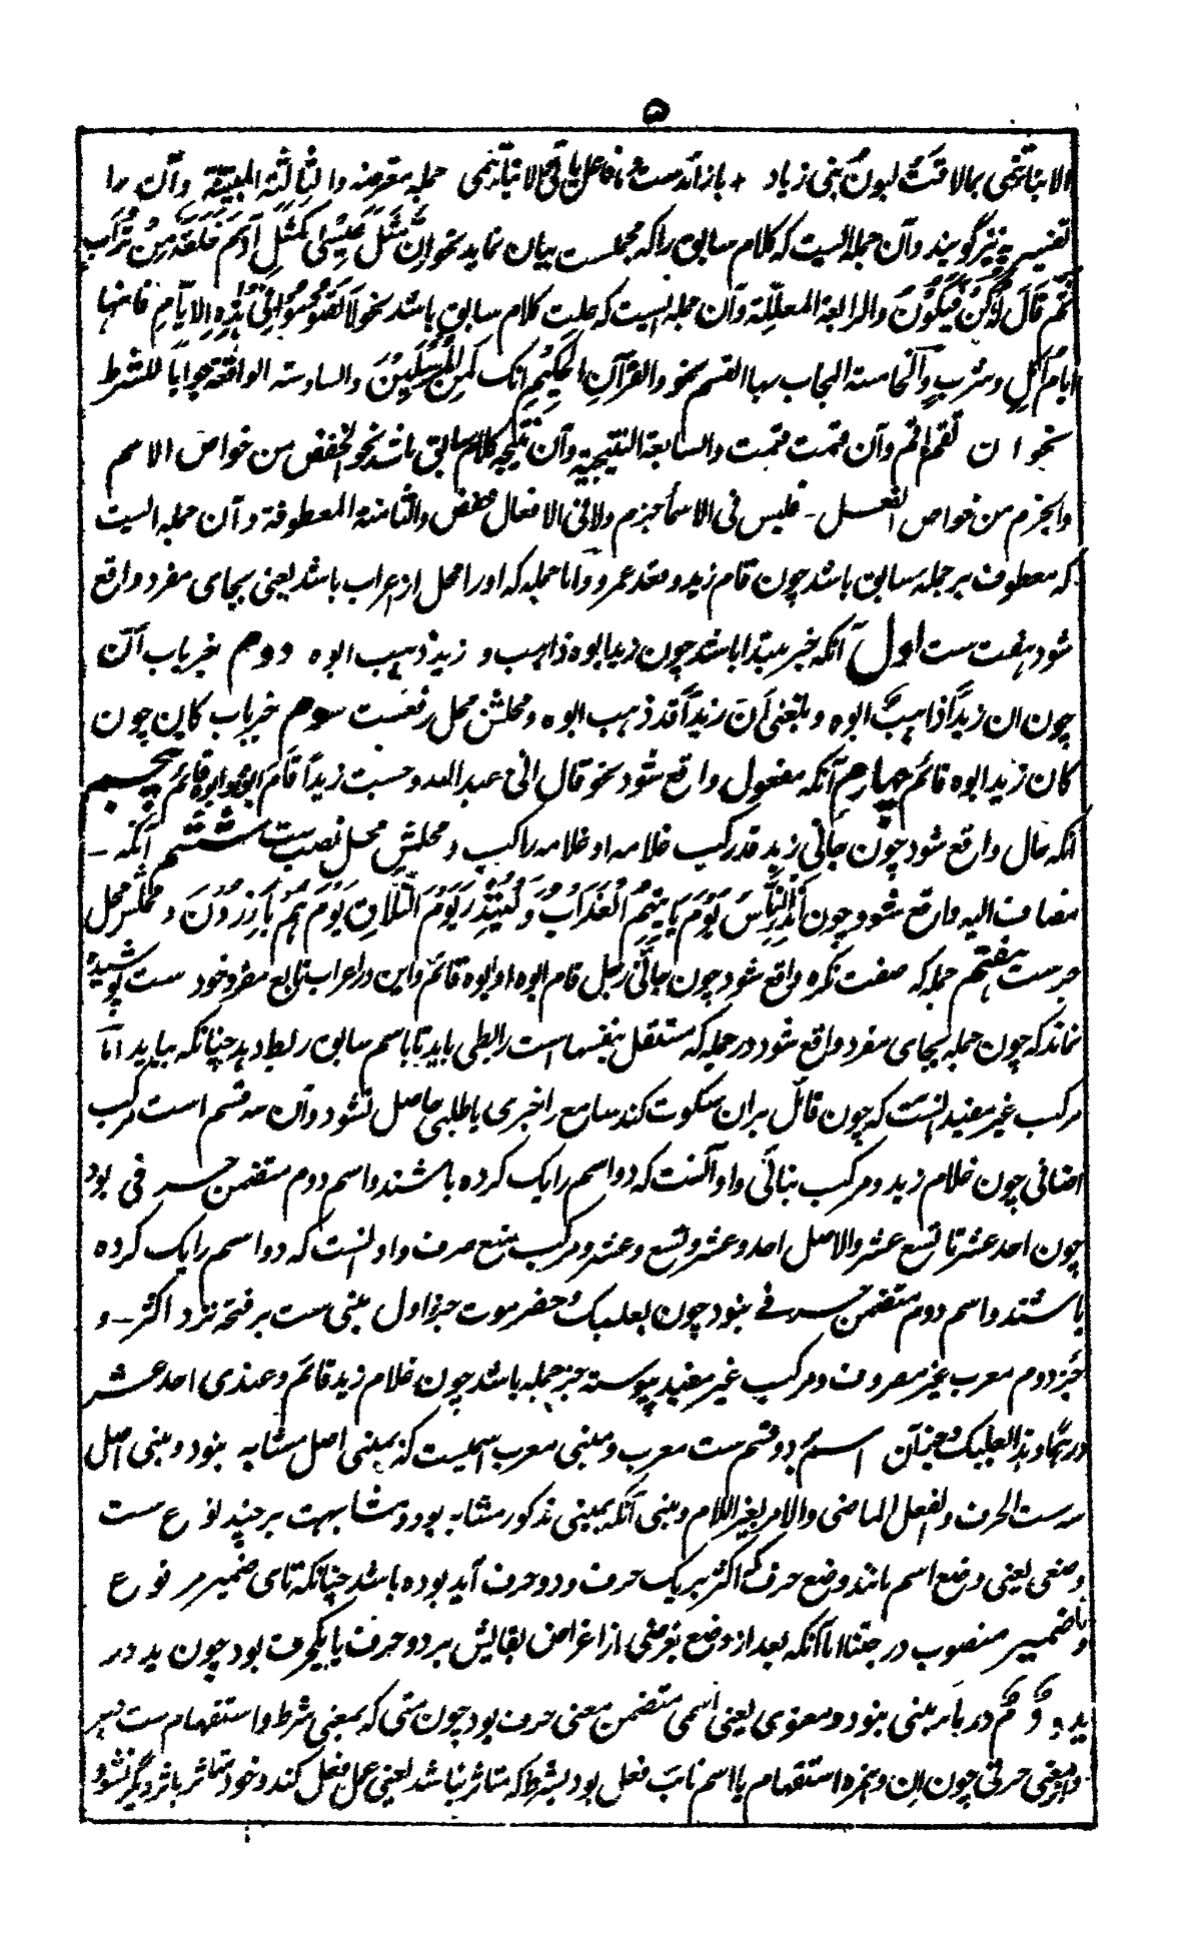 ۵
الانباء تنمی بمالاقت لبون بنی زیاد + باز آندست فاعل یاتی والانباء تنمی جمله معترضه والثالثة المبیّنة وآن را
تفسیریه نیز گویند وآن جمله ایست که کلام سابق را که مجملست بیان نماید نحو اِنَّ مَثَلَ عِیْسٰی کَمَثَلِ آدَمَ خَلَقَهٗ مِنْ تُرَابٍ
ثُمَّ قَالَ لَهٗ کُنْ فَیَکُوْنُ والرابعة المعلِّلة وآن جمله ایست که علت کلام سابق باشد نحو لَا تَصُوْمُوْا فِیْ هٰذِهِ الْاَیَّامِ فَاِنَّهَا
ایام اکل وشرب والخامسة المجاب بها القسم نحو والقرآن الحکیم انک لمن المرسلین والسادسة الواقعة جوابا للشرط
نحو ان تقم اقم وآن قمت قمت والسابعة النتیجیة وآن نتیجه کلام سابق باشد نحو الخفض من خواص الاسم
والجزم من خواص الفعل - فلیس فی الاسماء جزم ولا فی الافعال خفض والثامنة المعطوفة وآن جمله ایست
که معطوف بر جمله سابق باشد چون قام زید وقعد عمرو واما جمله که او را محل از اعراب باشد یعنی بجای مفرد واقع
شود هفت ست اول آنکه خبر مبتدا باشد چون زید ابوه ذاهب و زید ذهب ابوه دوم خبر باب اَنّ
چون ان زیداً ذاهبٌ ابوه وبلغنی اَنّ زیداً قد ذهب ابوه ومحلش محل رفعست سوم خبر باب کان چون
کان زید ابوه قائم چهارم آنکه مفعول واقع شود نحو قال انی عبد الله وحسبت زیداً قام ابوه او ابوه قائم پنجم
آنکه حال واقع شود چون جانی زید قد رکب غلامه او غلامه راکب ومحلش محل نصب ست ششم آنکه -
مضاف الیه واقع شود چون اَنْذِرِ النَّاسَ یَوْمَ یَاْتِیْهِمُ الْعَذَابُ وَلِیُنْذِرَ یَوْمَ التَّلَاقِ یَوْمَ هُمْ بَارِزُوْنَ ومحلش محل
جرست هفتم جمله که صفت نکره واقع شود چون جائنی رجل قام ابوه او ابوه قائم واین در اعراب تابع مفرد خود ست پوشیده
نماند که چون جمله بجای مفرد واقع شود در جمله که مستقل بنفسها است رابطی باید تا باسم سابق ربط دهد چنانکه بیاید اما
مرکب غیر مفید آنست که چون قائل بران سکوت کند سامع را خبری یا طلبی حاصل نشود وآن سه قسم است مرکب
اضافی چون غلام زید ومرکب بنائی واو آنست که دو اسم را یک کرده باشند واسم دوم متضمن حرفی بود
چون احد عشر تا تسع عشر والاصل احد وعشر وتسع وعشر ومرکب منع صرف واو آنست که دو اسم را یک کرده
باشند واسم دوم متضمن حرفے نبود چون بعلبک وحضر موت جزو اول مبنی ست بر فتحه نزد اکثر - و
جزو دوم معرب غیر منصرف ومرکب غیر مفید پیوسته جزو جمله باشد چون غلام زید قائم وعندی احد عشر
درهما وهذا بعلبک وجز آن اسم بر دو قسم ست معرب ومبنی معرب اسمیست که بمبنی اصل مشابه نبود ومبنی اصل
سه ست الحرف والفعل الماضی والامر بغیر اللام ومبنی آنکه بمبنی مذکور مشابه بود ومشابهت بر چند نوع ست
وضعی یعنی وضع اسم مانند وضع حرف که اکثر بر یک حرف ودو حرف آید بوده باشد چنانکه تای ضمیر مرفوع
ونا ضمیر منصوب در جئتنا اما آنکه بعد از وضع بغرضی از اغراض بقایش بر دو حرف یا یکحرف بود چون ید در
یدی و مُ در باء مبنی نبود ومعنوی یعنی اسمی متضمن معنی حرف بود چون متی که بمعنی شرط واستفهام ست
واین معنی حرفی چون اِن وهمزه استفهام یا اسم نایب فعل بود بشرطیکه متاثر نباشد یعنی عمل فعل کند وخود متاثر باثر دیگر نشود